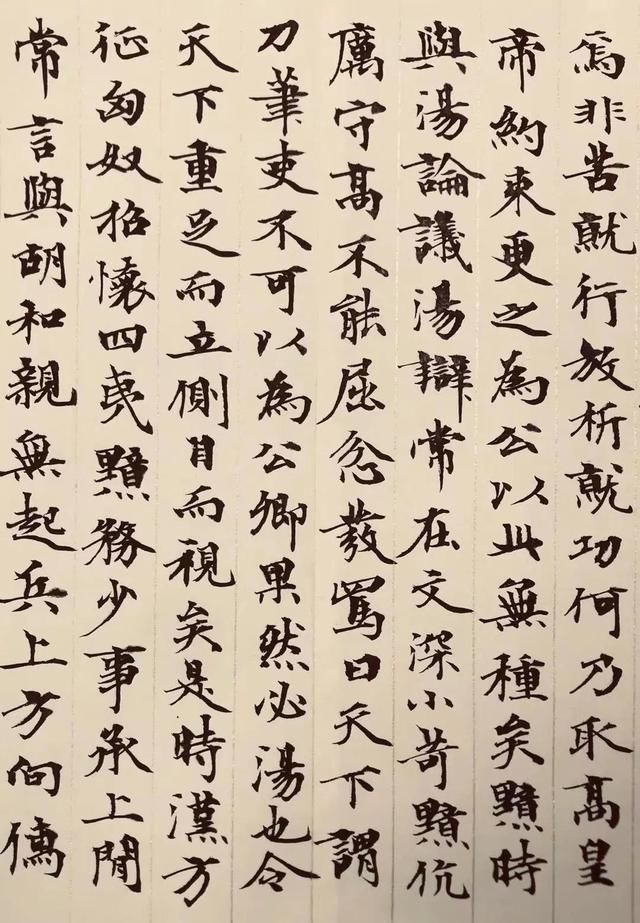 焉非苦就行放析就功何乃取髙皇
帝約束更之為公以此無種矣黯時
與湯論議湯辯常在文深小苛黯伉
厲守髙不能屈忿發罵曰天下謂
刀筆吏不可以為公卿果然必湯也令
天下重足而立側目而視矣是時漢方
征匈奴招懷四夷黯務少事承上閒
常言與胡和親無起兵上方向儒